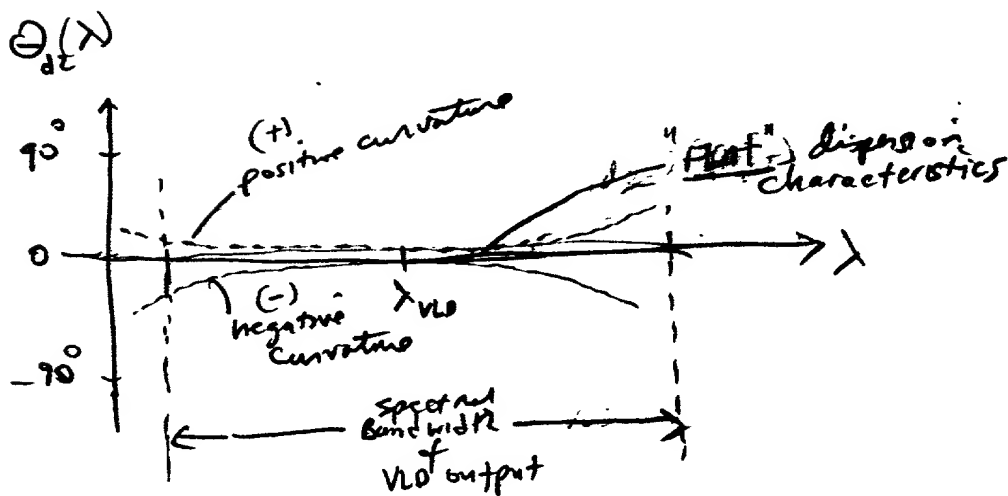 Θdt(λ)
90°
(+)
positive curvature
"Flat" dispersion
characteristics
0
λ
λVLD
(-)
negative
curvature
-90°
Spectral
Bandwidth
of
VLD output